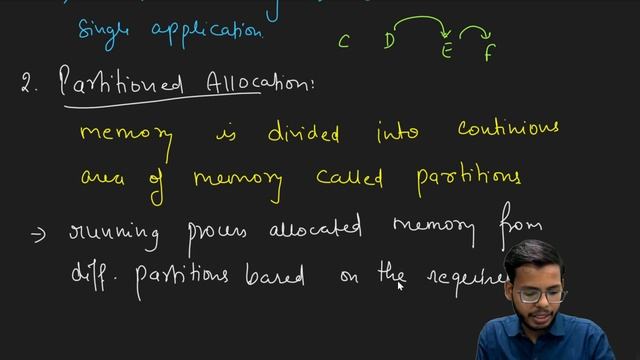 Single application
C D E F
2. Partitioned Allocation:
memory is divided into continious
area of memory called partitions
→ running process allocated memory from
diff. partitions based on the